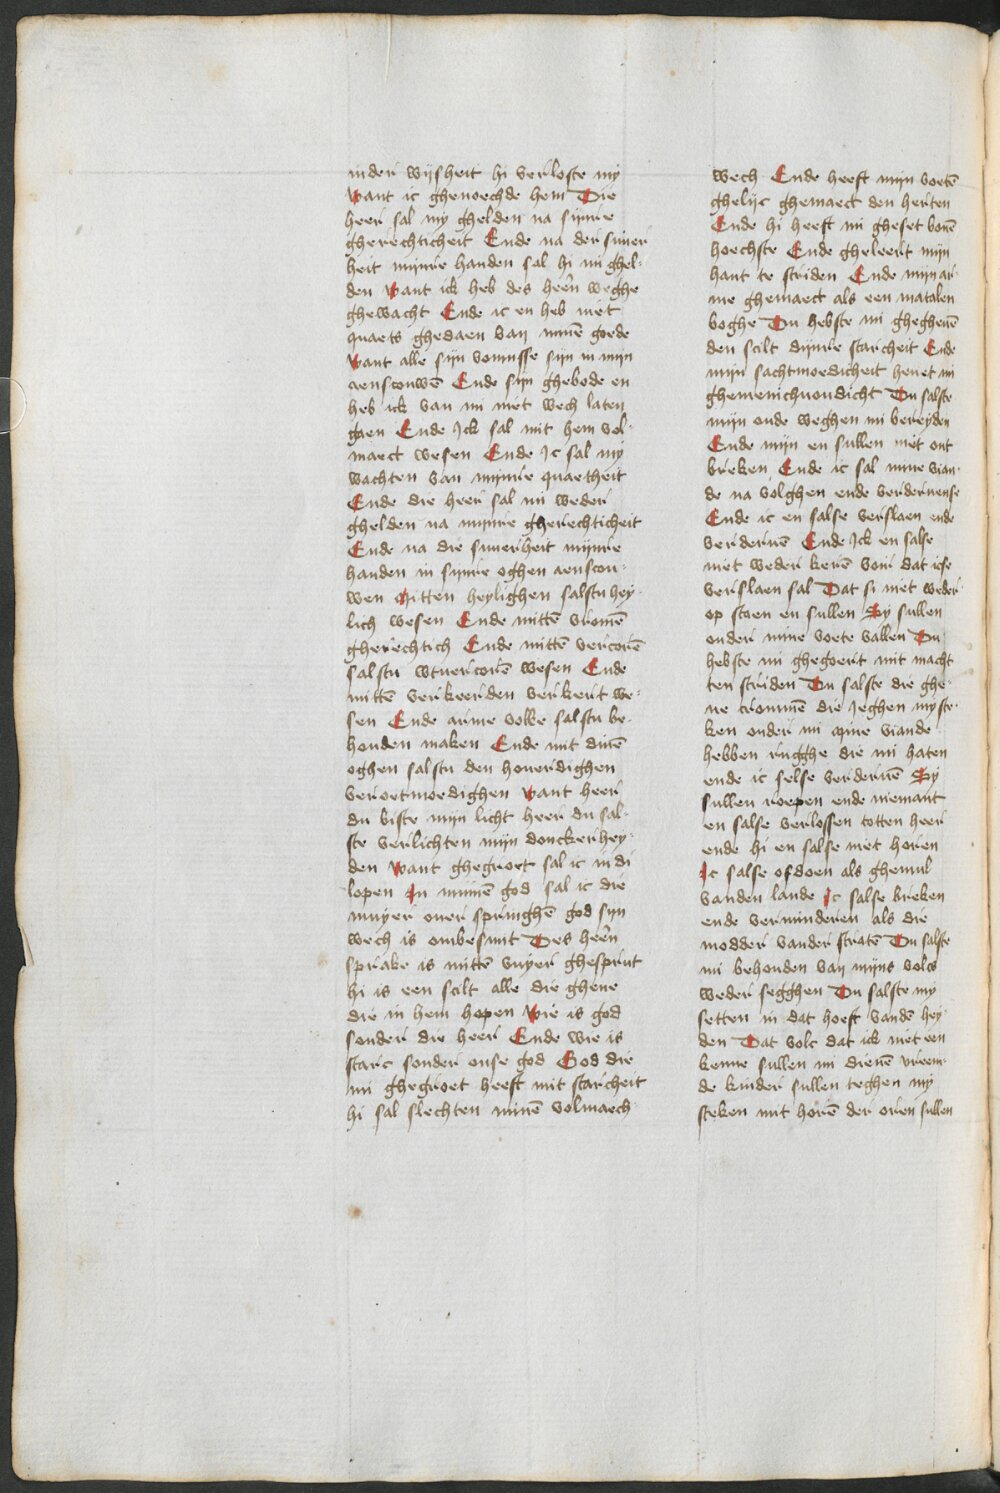 inder wijsheit hi verloste my
want ic ghenoechde hem Die
heer sal my ghelden na sijnre
gherechticheit Ende na der suuer
heit mijnre handen sal hi mi ghel-
den want ick heb des heren weghe
ghewacht Ende ic en heb niet
quaets ghedaen van minē gode
want alle sijn vonnisse sijn in mijn
aenscouwē Ende sijn ghebode en
heb ick van mi niet wech laten
gaen Ende Ick sal mit hem vol-
maect wesen Ende Ic sal my
wachten van mijnre quaetheit
Ende die heer sal mi weder
ghelden na mijnre gherechticheit
Ende na die suuerheit mijnre
handen in sijnre oghen aenscou-
wen Mitten heylighen salstu hey-
lich wesen Ende mittē vromē
gherechtich Ende mittē vercorē
salstu wtuercorē wesen Ende
mittē verkeerden verkeert we-
sen Ende arme volke salstu be-
houden maken Ende mit dinē
oghen salstu den houerdighen
veroetmoedighen want heer
du biste mijn licht heer du sal-
ste verlichten mijn donckerhey-
den want ghegroet sal ic in di
lopen In minē god sal ic die
muyer ouer springhē god sijn
wech is ombesmit Des heren
sprake is mittē vuyer ghesprut
hi is een scilt alle die ghene
die in hem hopen wie is god
sonder die heer Ende wie is
starc sonder onse god God die
mi ghegroet heeft mit starcheit
hi sal slechten minē volmaech
wech Ende heeft mijn voetē
ghelijc ghemaect den herten
Ende hi heeft mi gheset bouē
hoechste Ende gheleert mijn
hant te striden Ende mijn ar-
me ghemaect als een matalen
boghe Du hebste mi ghegheuē
den scilt dijnre starcheit Ende
mijn sachtmoedicheit heuet mi
ghemenichuoudicht Du salste
mijn onde weghen mi bereyden
Ende mijn en sullen niet ont
breken Ende ic sal mine vian-
de na volghen ende verderuense
Ende ic en salse verslaen ende
verderuē Ende Ick en salse
niet weder kerē voir dat icse
verslaen sal Dat si niet weder
op staen en sullen Sy sullen
onder mine voete vallen Du
hebste mi ghegoert mit macht
ten striden Du salste die ghe-
ne crommē die ieghen my ste-
ken onder mi Mine viande
hebben rugghe die mi haten
ende ic selse verderuē Sy
sullen roepen ende niemant
en salse verlossen totten heer
ende hi en salse niet horen
Ic salse ofdoen als ghemul
vanden lande Ic salse breken
ende verminderen als die
modder vander stratē Du salste
mi behouden van mijns volcs
weder segghen Du salste my
setten in dat hoeft vandē hey-
den Dat volc dat ick niet een
kenne sullen mi dienē vreem-
de kinder sullen teghen my
steken mit horē der oren sullen